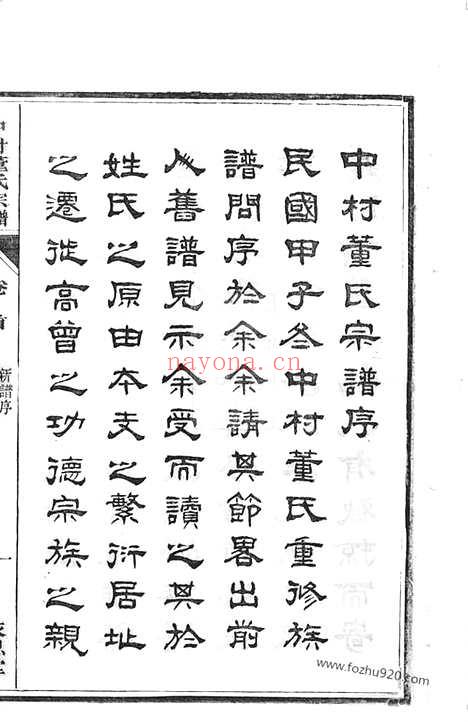 中村董氏宗譜序
民國甲子冬中村董氏重修族
譜問序於余余請其節畧出前
人舊譜見示余受而讀之其於
姓氏之原由本支之繁衍居址
之遷徙高曾之功德宗族之親
中村董氏宗譜
卷首
新譜序
一
nayona.cn
www.fozhu920.com